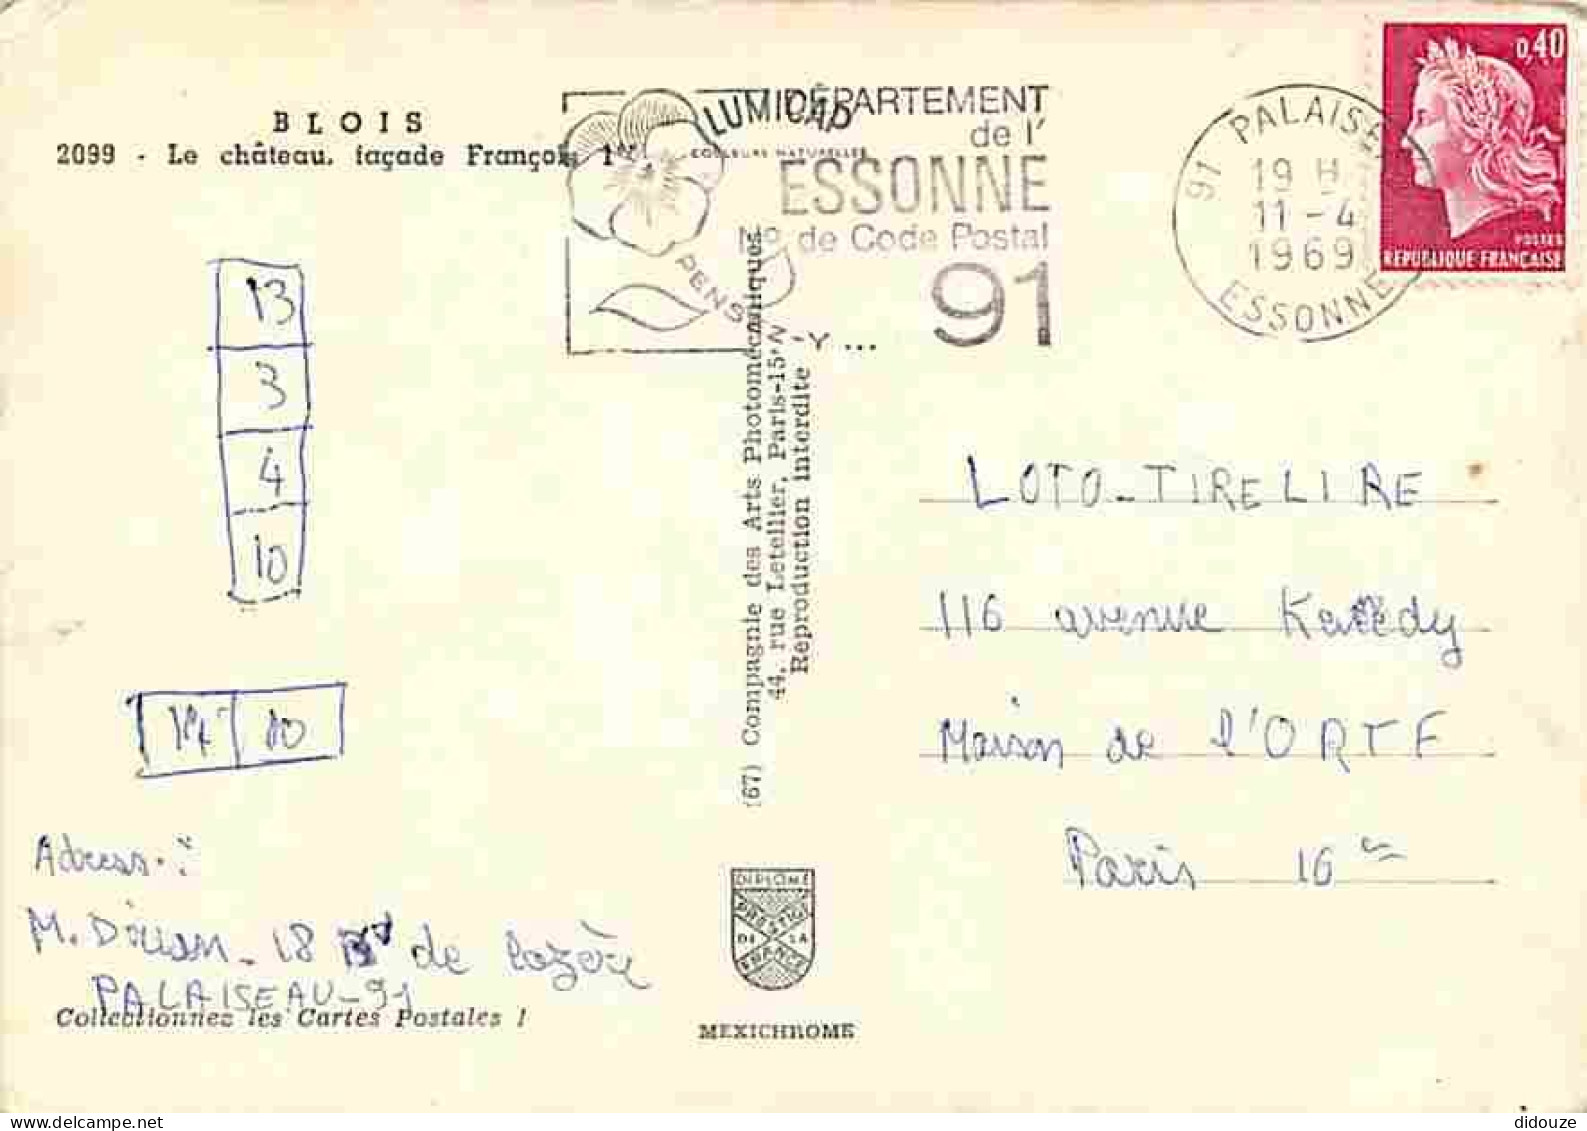 BLOIS
2099 - Le château, façade François 1er
LUMICAP
COULEURS NATURELLES
DÉPARTEMENT
de l'
ESSONNE
No de Code Postal
91
PENS -Y ...
91 PALAISE
19 H
11 - 4
1969
ESSONNE
0,40
POSTES
REPUBLIQUE FRANÇAISE
13
3
4
10
14 10
(67) Compagnie des Arts Photomécaniques
44, rue Letellier, Paris-15e
Reproduction interdite
LOTO-TIRELIRE
116 avenue Kennedy
Maison de l'ORTF
Paris 16
Adresse :
M. - 18 Bd de Lozère
PALAISEAU-91
Collectionnez les Cartes Postales !
DIPLOME
PRESTIGE
DE LA
FRANCE
MEXICHROME
didouze